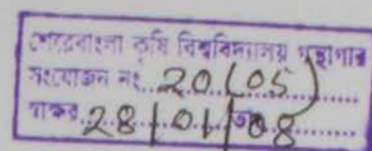 শেরেবাংলা কৃষি বিশ্ববিদ্যালয় গ্রন্থাগার
সংযোজন নং 20(05)
স্বাক্ষর 28/01/08